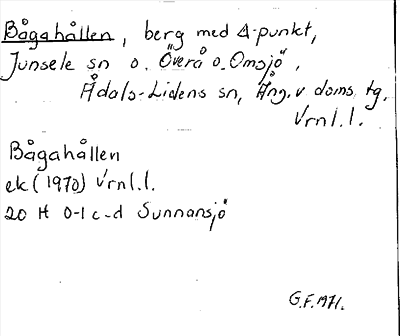 Bågahållen, berg med Δ-punkt,
Junsele sn o. Överå o. Omsjö,
Ådals-Lidens sn, Ång. v doms tg.
Vrnl.l.
Bågahållen
ek (1970) Vrnl.l.
20 H 0-1 c-d Sunnansjö
G.F. 1971.